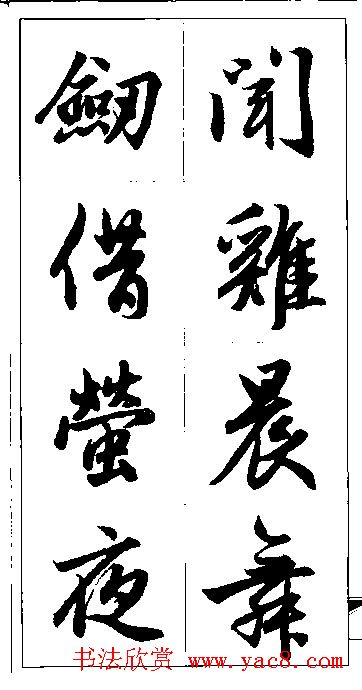 聞雞晨舞
劒借螢夜
书法欣赏 www.yac8.com